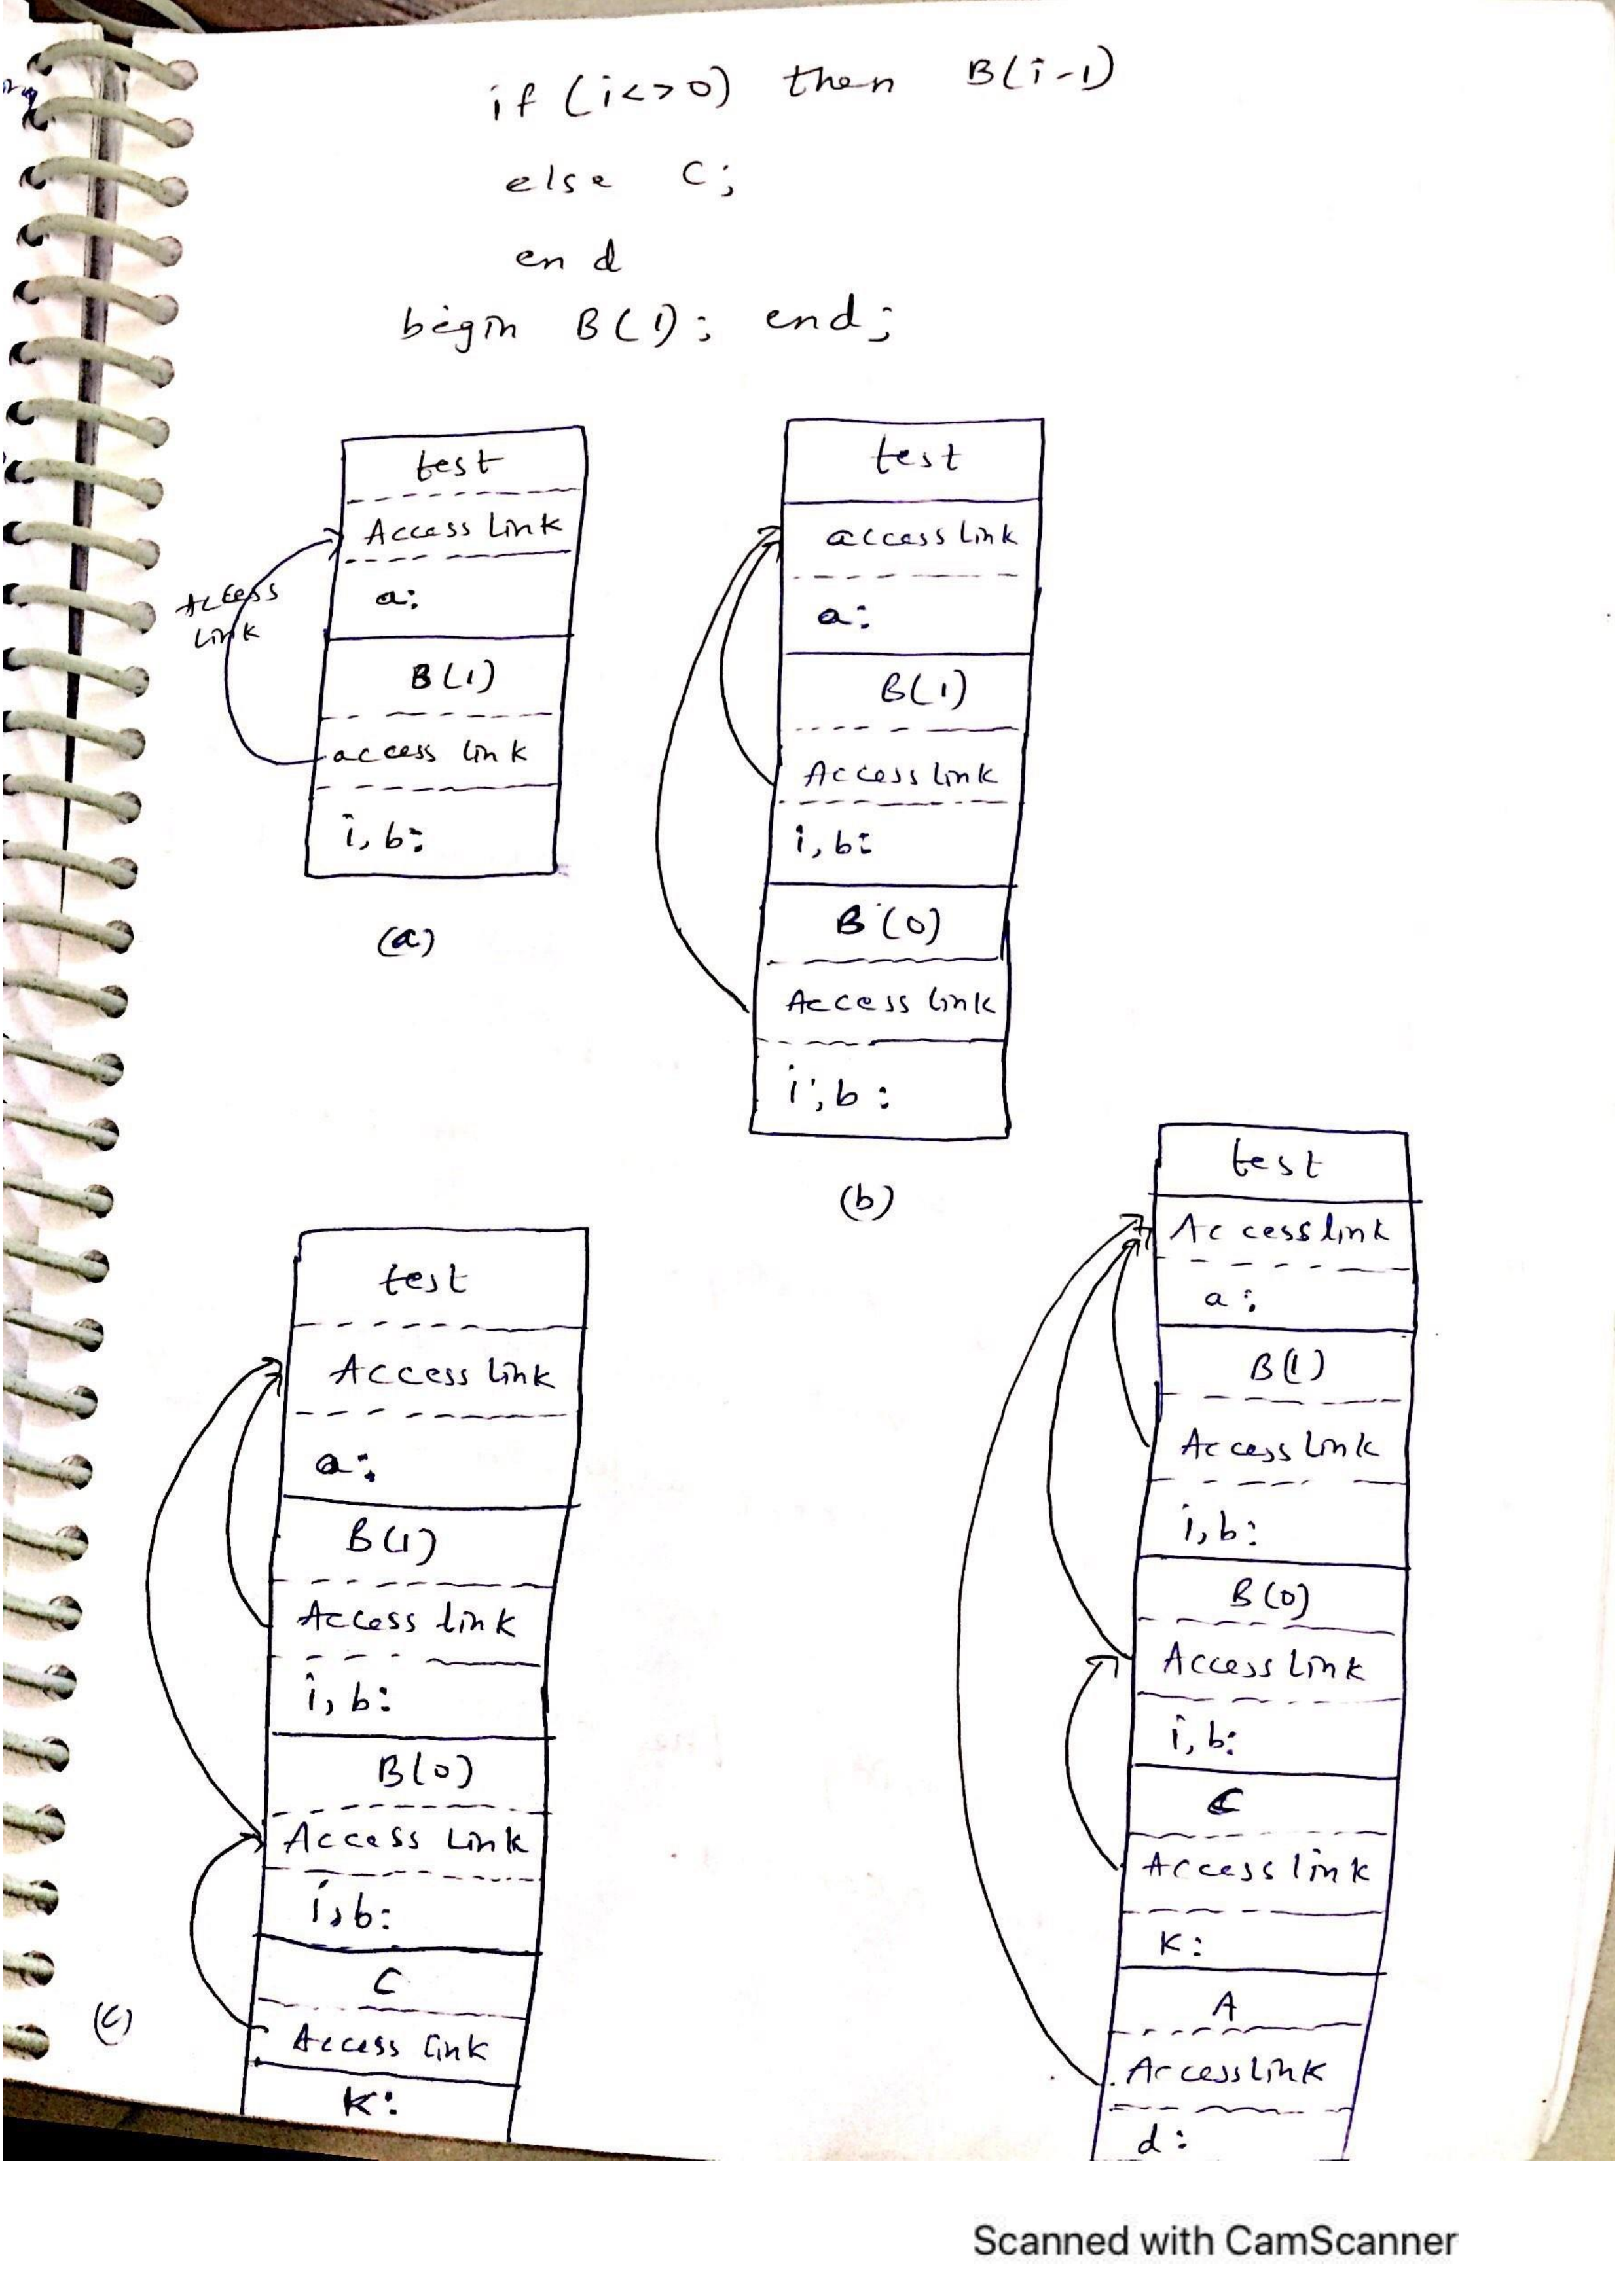 if (i<>0) then B(i-1)
else C;
end
begin B(1); end;
test
Access Link
a:
B(1)
access link
i, b:
Access
Link
(a)
test
access link
a:
B(1)
Access link
i, b:
B(0)
Access link
i, b:
(b)
test
Access link
a:
B(1)
Access link
i, b:
B(0)
Access Link
i, b:
C
Access link
K:
(c)
test
Access link
a:
B(1)
Access link
i, b:
B(0)
Access Link
i, b:
C
Access link
K:
A
Access link
d:
Scanned with CamScanner